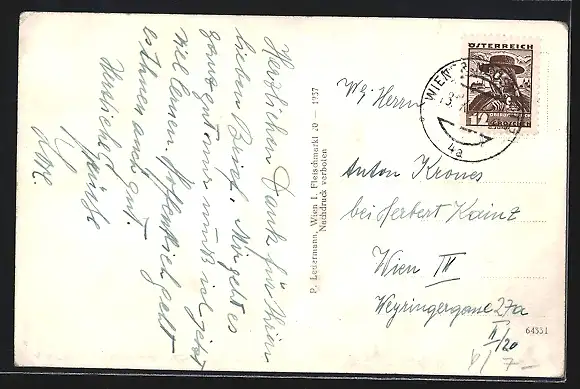 Herzlichen Dank für Ihren
lieben Brief. Mir geht es
ganz gut nur muß ich jetzt
viel lernen. Hoffentlich geht
es Ihnen auch gut.
Herzliche Grüße
P. Ledermann, Wien I, Fleischmarkt 20 — 1937
Nachdruck verboten
ÖSTERREICH
12
GROSCHEN
WIEN
4a
Wg. Herrn
Anton Krones
bei Herbert Kainz
Wien III
Weyringergasse 27a
II/20
64331